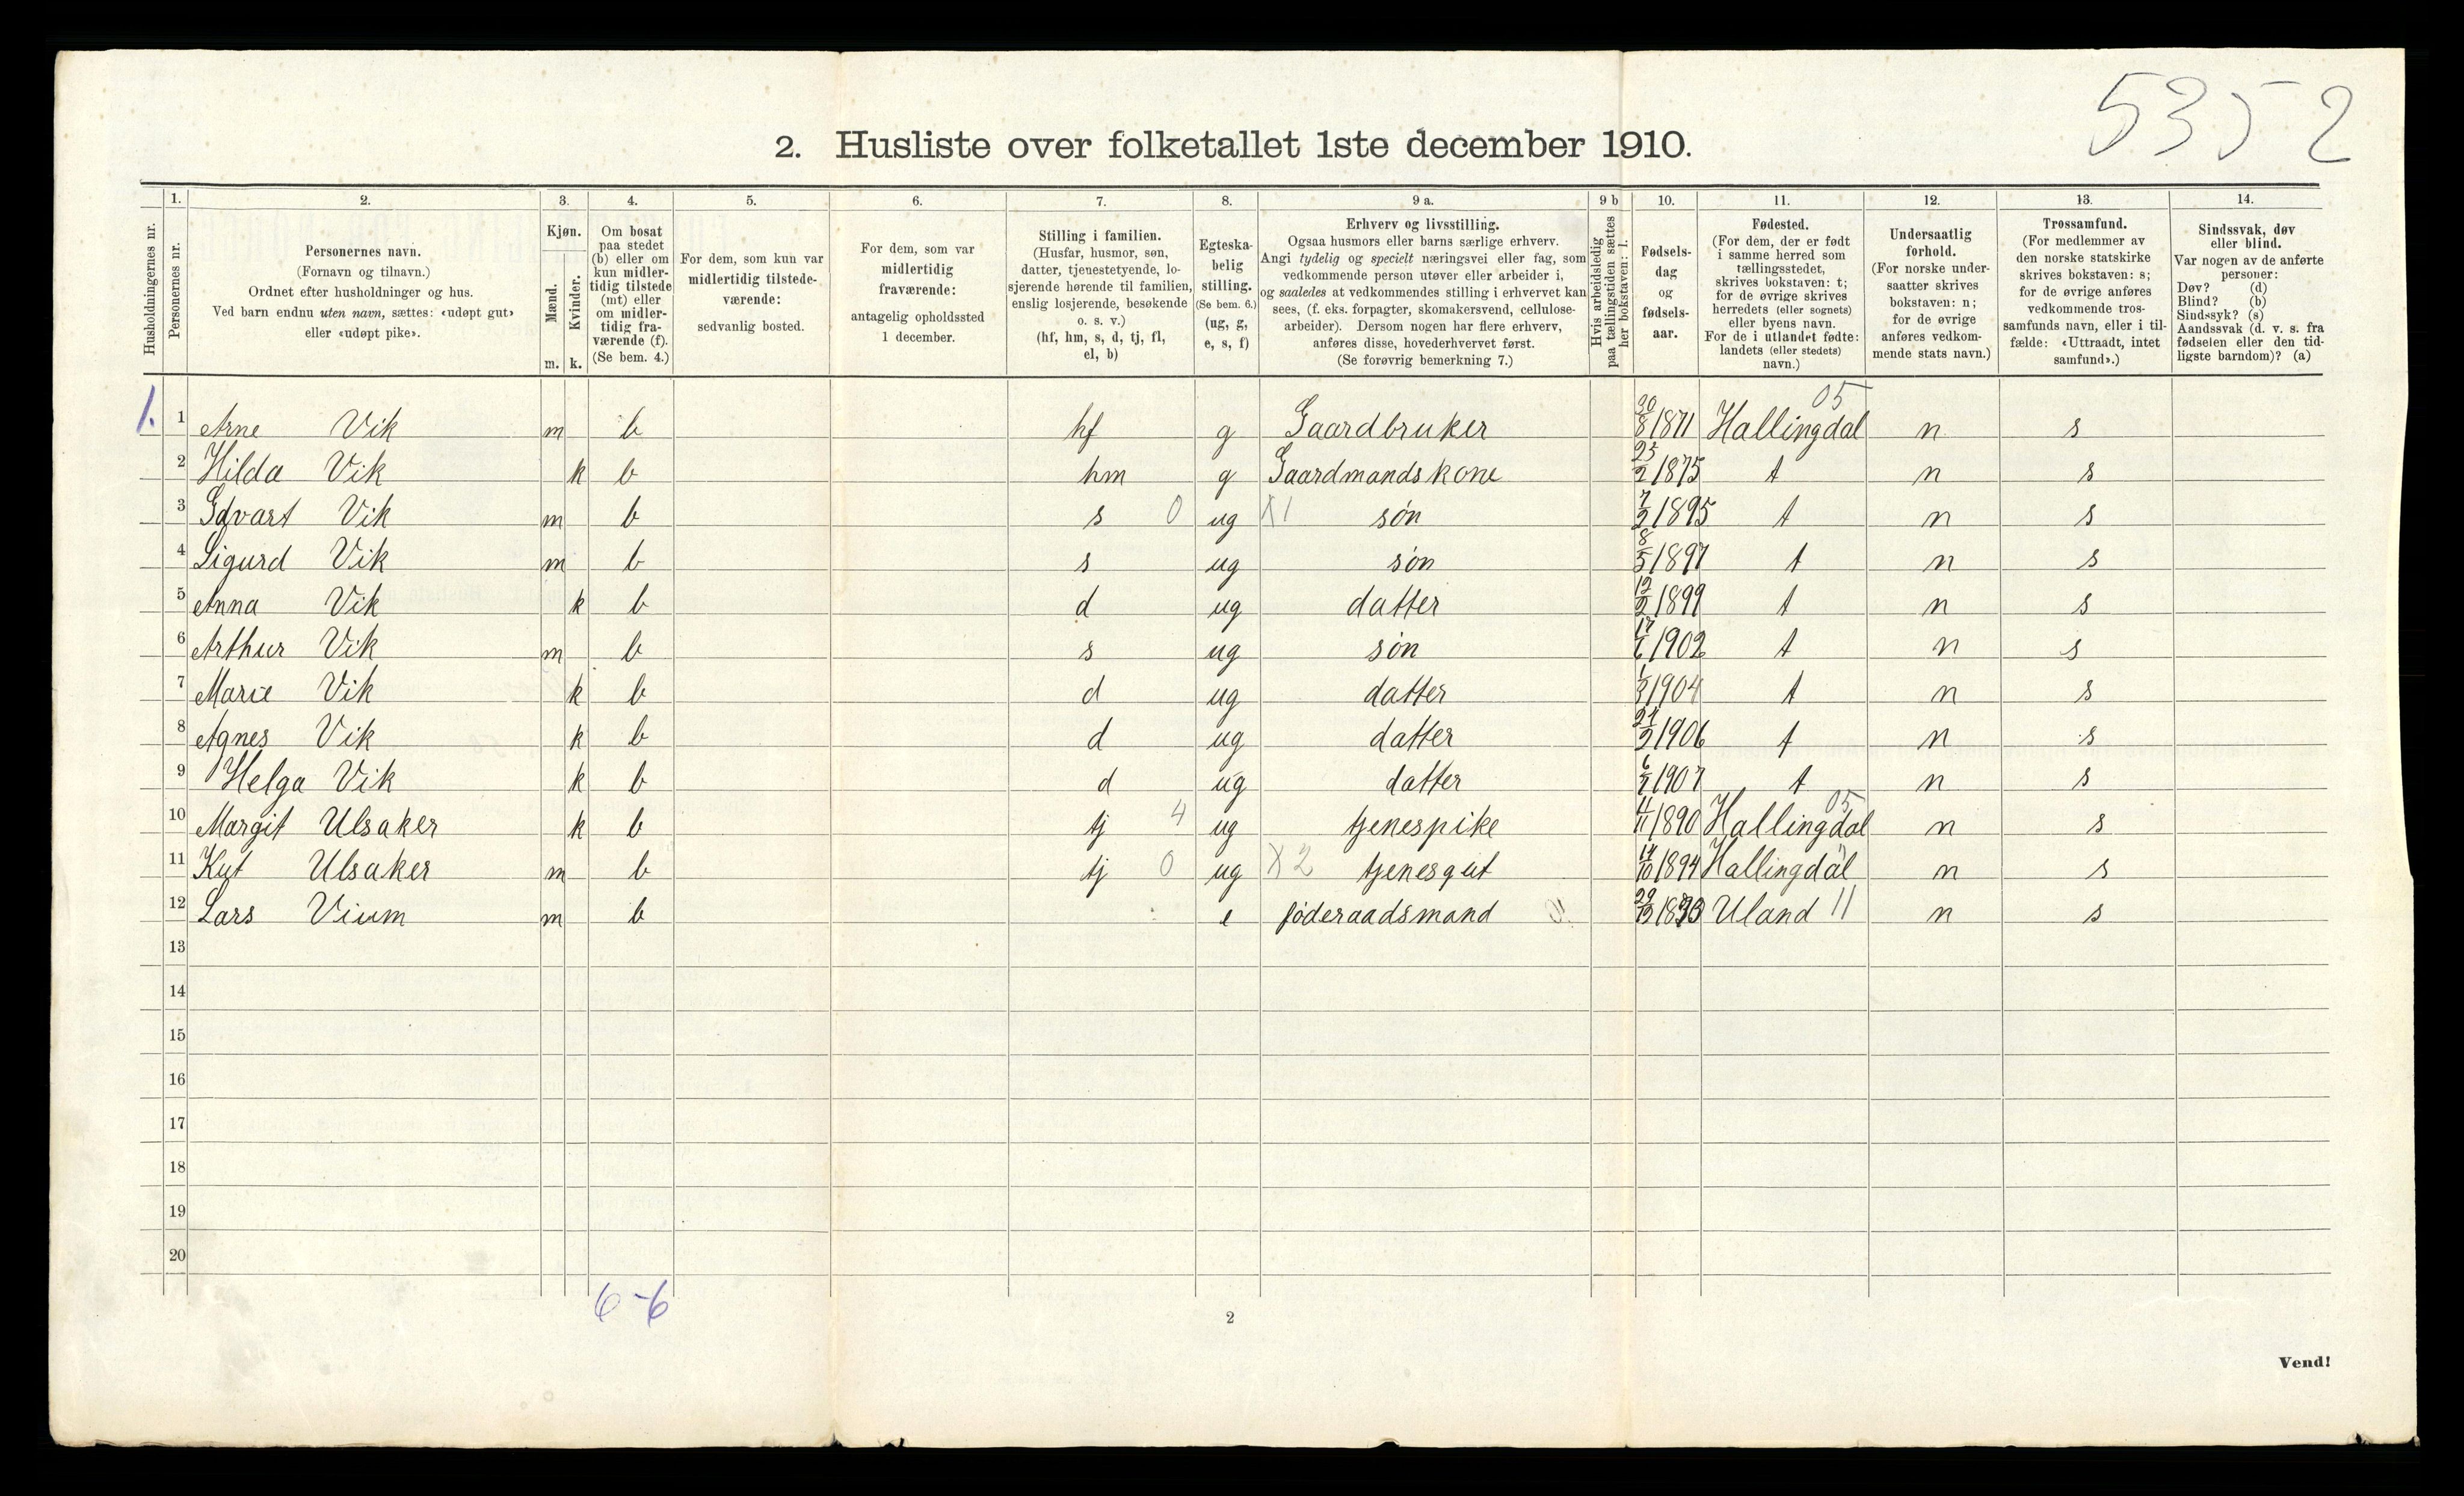 5352
2. Husliste over folketallet 1ste december 1910.
Husholdningernes nr.
1.
Personernes nr.
2.
Personernes navn.
(Fornavn og tilnavn.)
Ordnet efter husholdninger og hus.
Ved barn endnu uten navn, sættes: «udøpt gut»
eller «udøpt pike».
3.
Kjøn.
Mænd.
Kvinder.
m. k.
4.
Om bosat
paa stedet
(b) eller om
kun midler-
tidig tilstede
(mt) eller
om midler-
tidig fra-
værende (f).
(Se bem. 4.)
5.
For dem, som kun var
midlertidig tilstede-
værende:
sedvanlig bosted.
6.
For dem, som var
midlertidig
fraværende:
antagelig opholdssted
1 december.
7.
Stilling i familien.
(Husfar, husmor, søn,
datter, tjenestetyende, lo-
sjerende hørende til familien,
enslig losjerende, besøkende
o. s. v.)
(hf, hm, s, d, tj, fl,
el, b)
8.
Egteska-
belig
stilling.
(Se bem. 6.)
(ug, g,
e, s, f)
9 a.
Erhverv og livsstilling.
Ogsaa husmors eller barns særlige erhverv.
Angi tydelig og specielt næringsvei eller fag, som
vedkommende person utøver eller arbeider i,
og saaledes at vedkommendes stilling i erhvervet kan
sees, (f. eks. forpagter, skomakersvend, cellulose-
arbeider). Dersom nogen har flere erhverv,
anføres disse, hovederhvervet først.
(Se forøvrig bemerkning 7.)
9 b
Hvis arbeidsledig
paa tællingstiden sættes
her bokstaven: l.
10.
Fødsels-
dag
og
fødsels-
aar.
11.
Fødested.
(For dem, der er født
i samme herred som
tællingsstedet,
skrives bokstaven: t;
for de øvrige skrives
herredets (eller sognets)
eller byens navn.
For de i utlandet fødte:
landets (eller stedets)
navn.)
12.
Undersaatlig
forhold.
(For norske under-
saatter skrives
bokstaven: n;
for de øvrige
anføres vedkom-
mende stats navn.)
13.
Trossamfund.
(For medlemmer av
den norske statskirke
skrives bokstaven: s;
for de øvrige anføres
vedkommende tros-
samfunds navn, eller i til-
fælde: «Uttraadt, intet
samfund».)
14.
Sindssvak, døv
eller blind.
Var nogen av de anførte
personer:
Døv? (d)
Blind? (b)
Sindssyk? (s)
Aandssvak (d. v. s. fra
fødselen eller den tid-
ligste barndom)? (a)
05
1. 1 Arne Vik m b hf g Gaardbruker 30/8 1871 Hallingdal n s
2 Hilda Vik k b hm g Gaardmandskone 25/2 1875 t n s
3 Edvart Vik m b s 0 ug X1 søn 7/2 1895 t n s
4 Sigurd Vik m b s ug søn 8/5 1897 t n s
5 Anna Vik k b d ug datter 12/2 1899 t n s
6 Arthur Vik m b s ug søn 17/6 1902 t n s
7 Marie Vik k b d ug datter 1904 t n s
8 Agnes Vik k b d ug datter 1906 t n s
9 Helga Vik k b d ug datter 1907 t n s
05
10 Margit Ulsaker k b tj 4 ug tjenespike 11/11 1890 Hallingdal n s
11 Kut Ulsaker m b tj 0 ug X2 tjenesgut 14/10 1894 Hallingdal n s
12 Lars Vium m b e føderaadsmand Uland 11 n s
13
14
15
16
17
18
19
20
6-6
2
Vend!